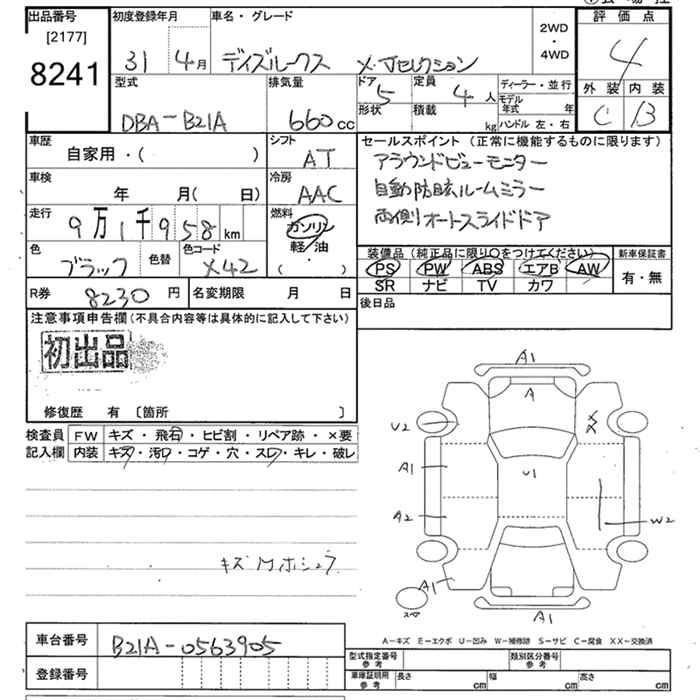 出品番号
[2177]
8241
初度登録年月
31 4月
車名・グレード
デイズルークス X・Jセレクション
2WD
・
4WD
評価点
4
外装 内装
C B
型式
DBA-B21A
排気量
660cc
ドア
5
形状
定員
4人
積載
kg
ディーラー・並行
モデル年式 年
ハンドル 左・右
車歴
自家用・( )
シフト
AT
車検
年 月( 日)
冷房
AAC
走行
9万1千958km
燃料
ガソリン
軽/油
( ・ )
色
ブラック
色替
色コード
X42
セールスポイント (正常に機能するものに限ります)
アラウンドビューモニター
自動防眩ルームミラー
両側オートスライドドア
装備品 (純正品に限り○をつけてください)
PS PW ABS エアB AW
SR ナビ TV カワ
新車保証書
有・無
R券
8230円
名変期限 月 日
後日品
注意事項申告欄(不具合内容等は具体的に記入して下さい)
初出品
修復歴 有 〔箇所 〕
検査員
記入欄
FW キズ・飛石・ヒビ割・リペア跡・×要
内装 キズ・汚レ・コゲ・穴・スレ・キレ・破レ
A1
A
U2
XX
A1
U1
A2
W2
A1
A1
スペ
A-キズ E-エクボ U-凹み W-補修跡 S-サビ C-腐食 XX-交換済
車台番号
B21A-0563905
登録番号
型式指定番号
参考
類別区分番号
参考
車庫証明用
参考
長さ cm
幅 cm
高さ cm